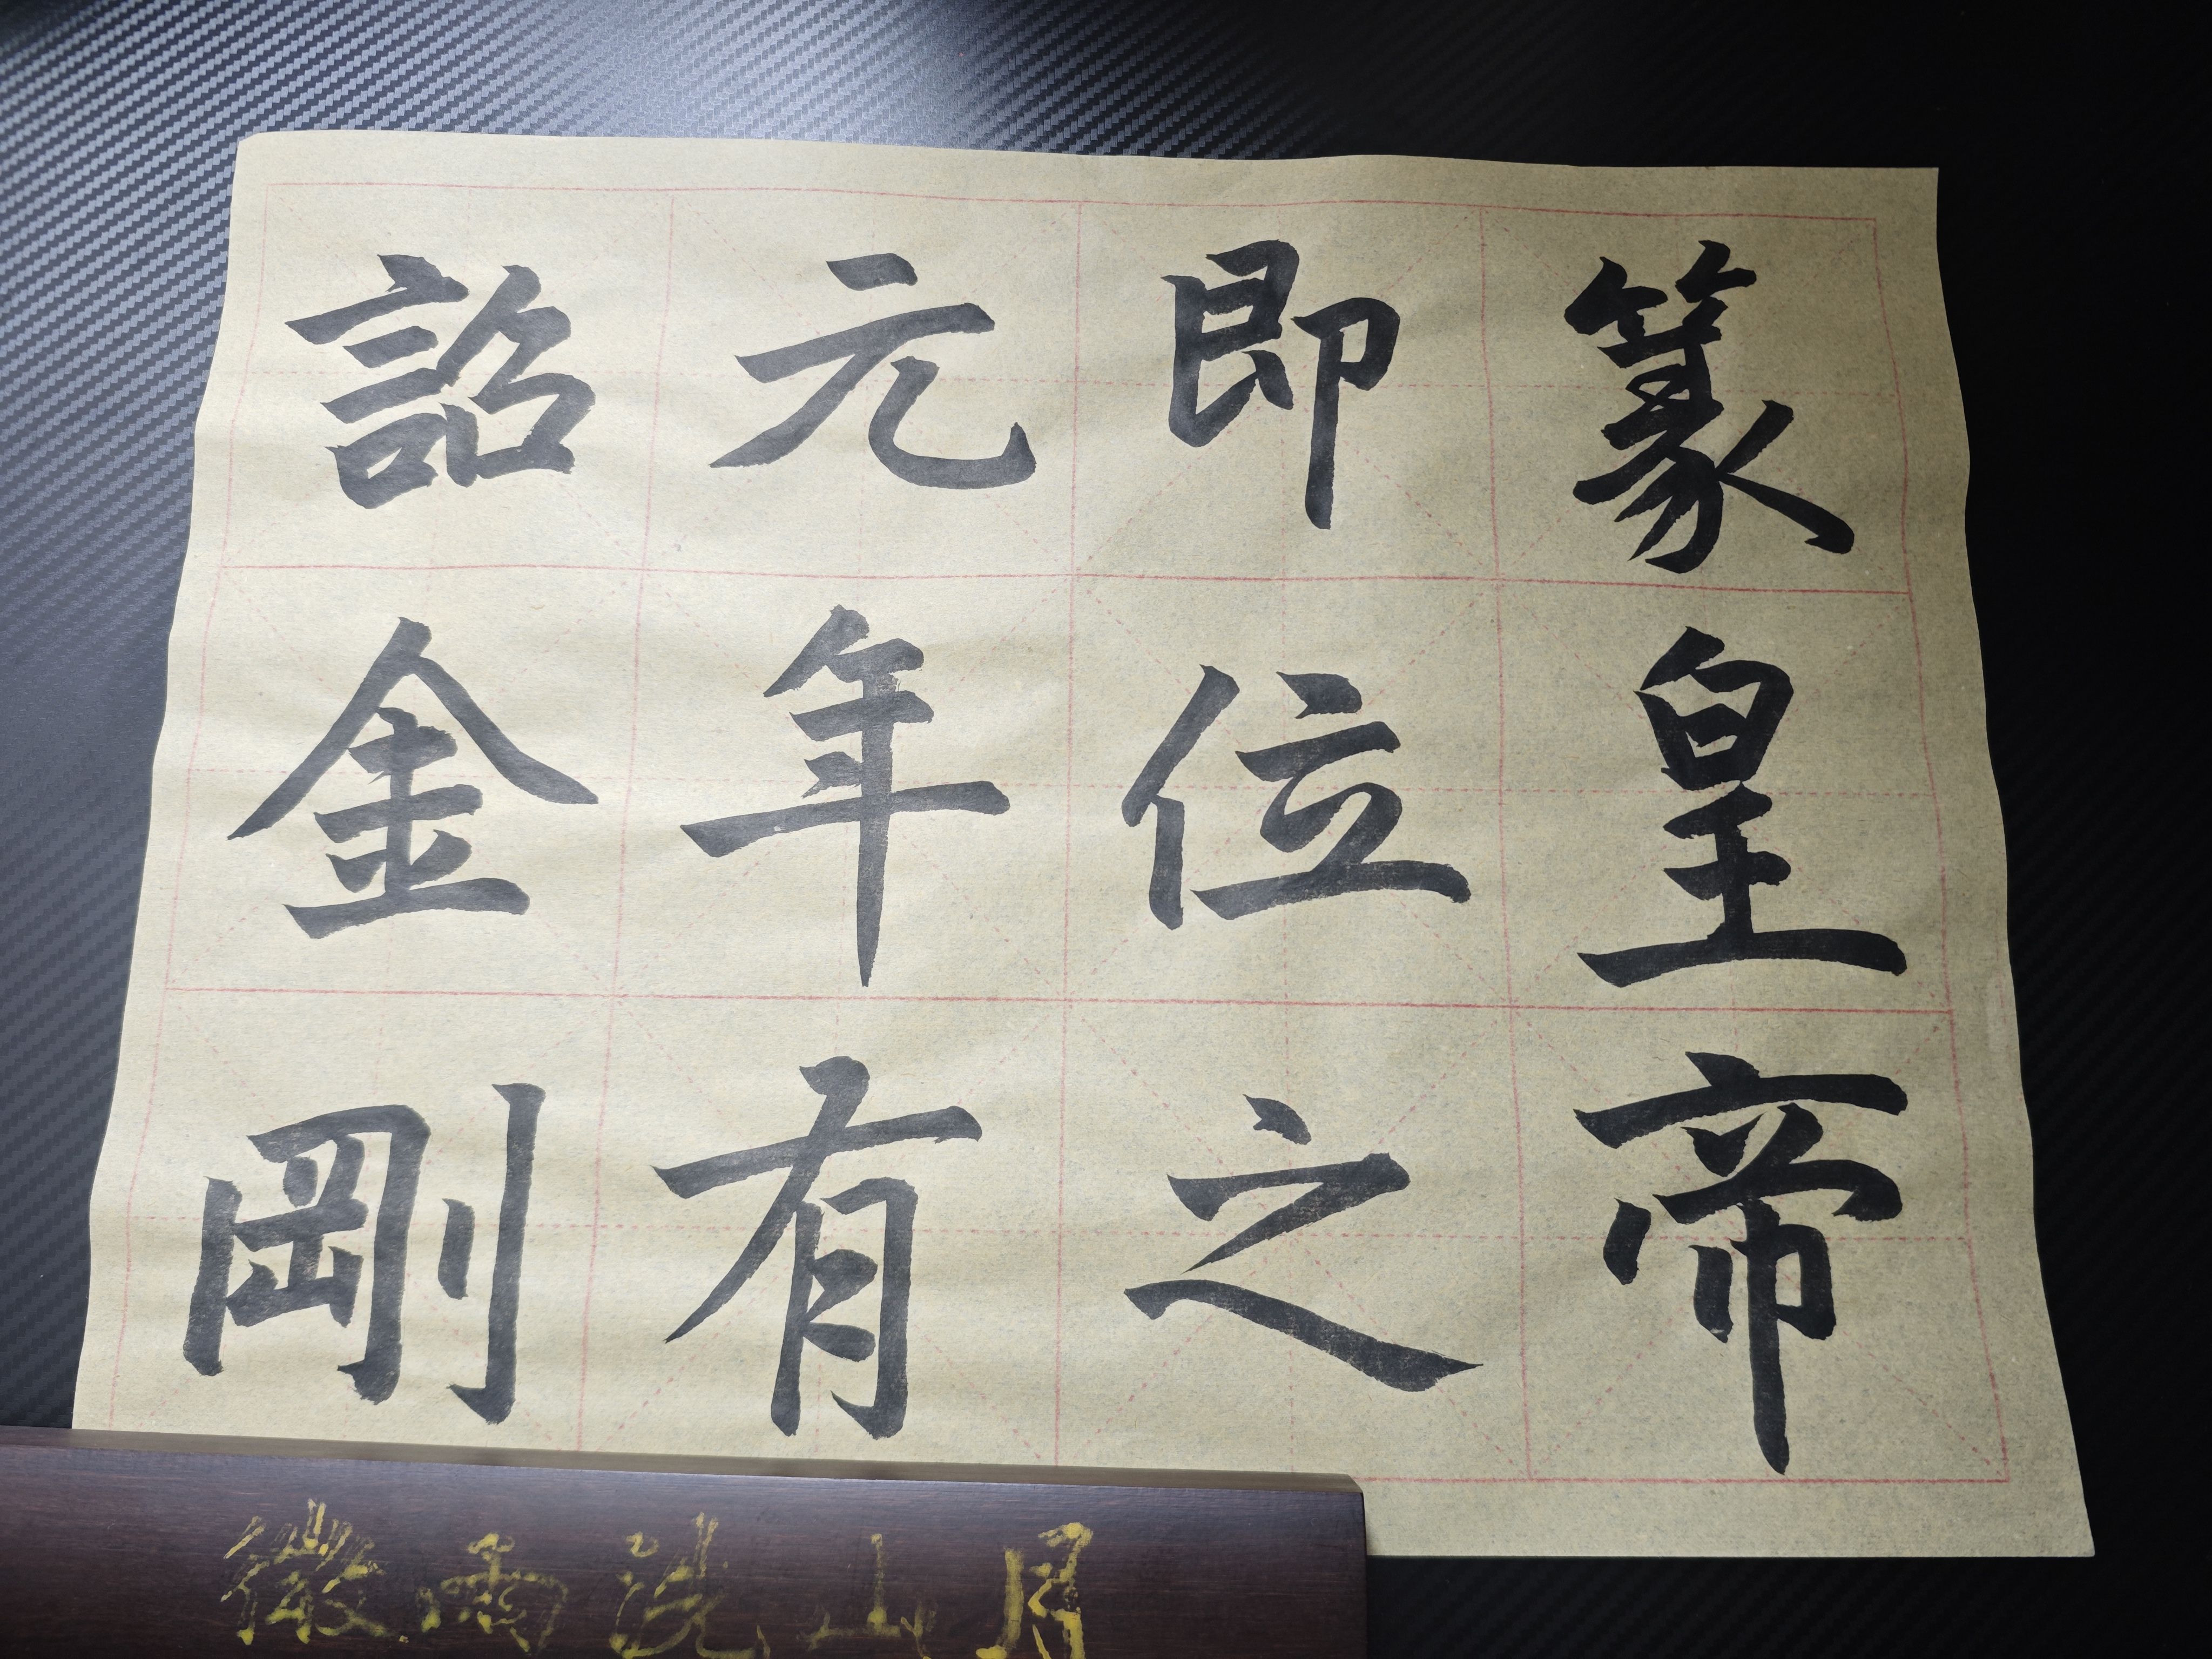 篆皇帝
即位之
元年有
詔金剛
微雨洗山月